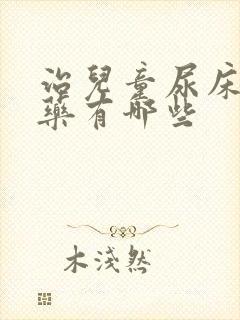 治兒童尿床
藥有哪些
木淺然